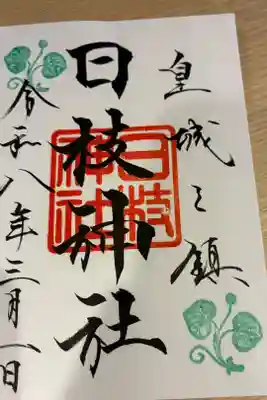 皇城之鎮
日枝神社
日枝神社
令和八年三月一日